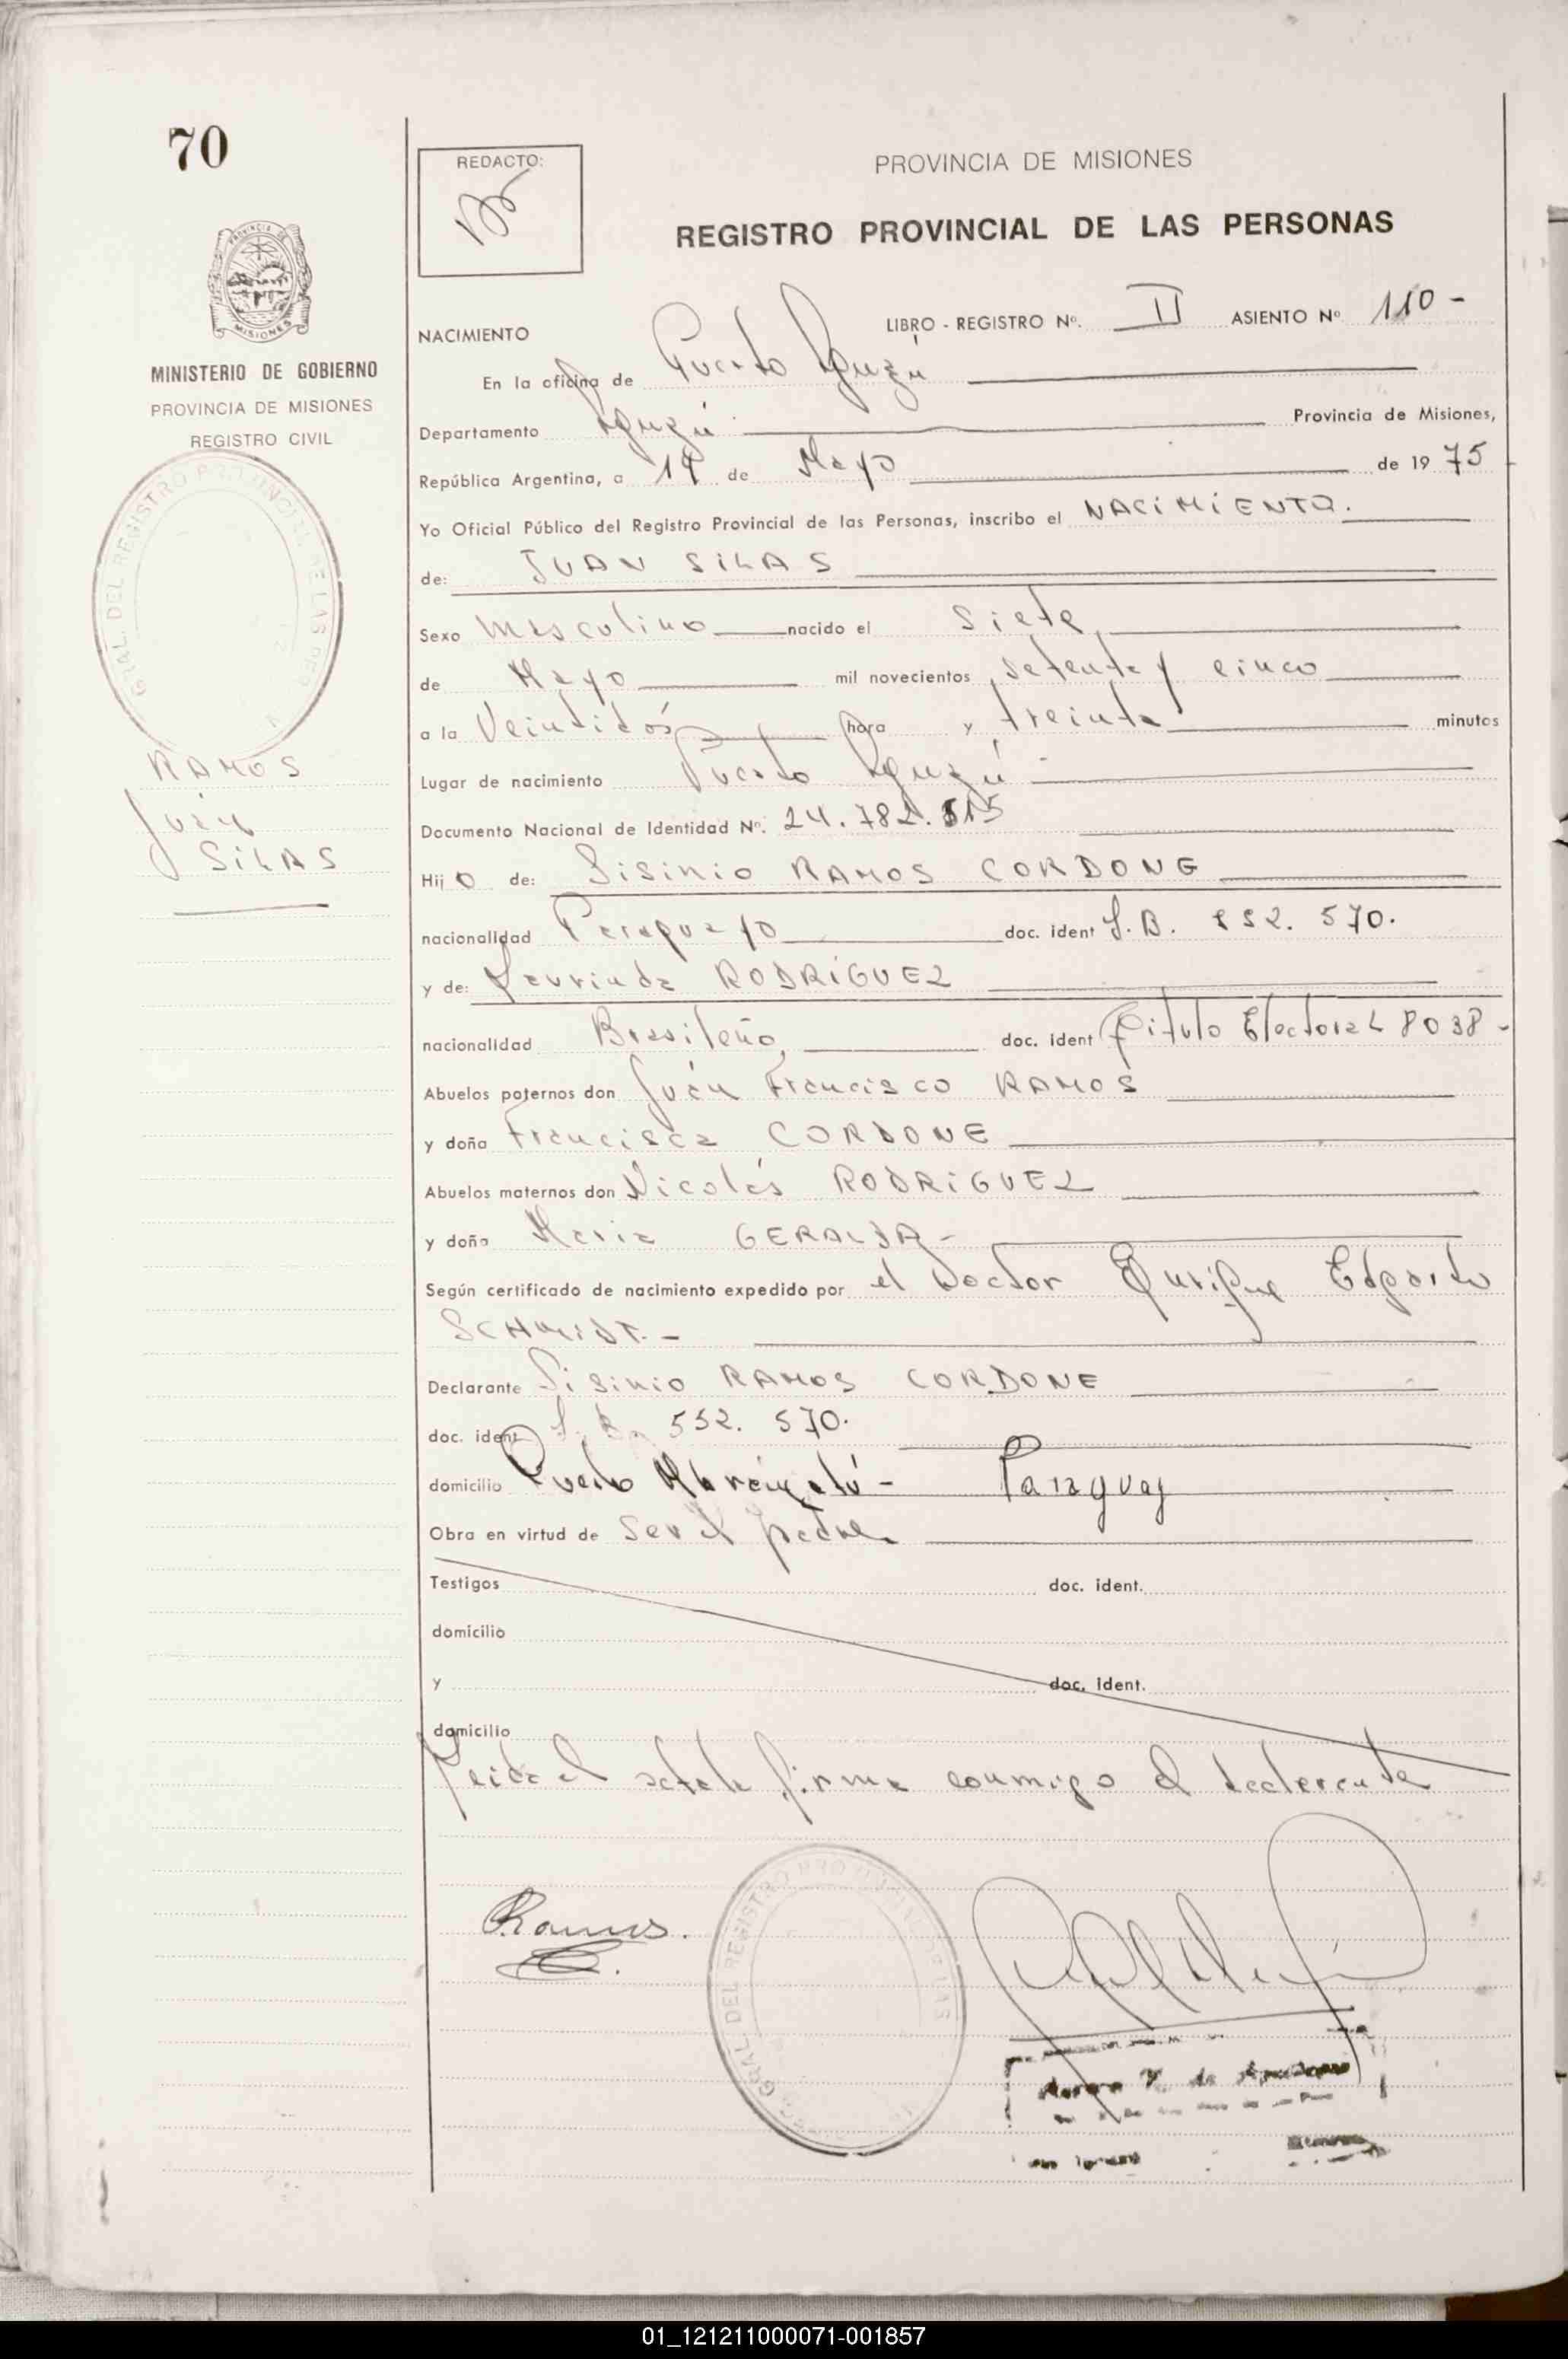 70
REDACTO:
PROVINCIA DE MISIONES
REGISTRO PROVINCIAL DE LAS PERSONAS
NACIMIENTO
LIBRO - REGISTRO Nº. II ASIENTO Nº 110-
En la oficina de Puerto Iguazú
Departamento Iguazú Provincia de Misiones,
República Argentina, a 19 de Mayo de 1975
Yo Oficial Público del Registro Provincial de las Personas, inscribo el NACIMIENTO.
de: JUAN SILAS
Sexo Masculino nacido el Siete
de Mayo mil novecientos setenta y cinco
a la Veintidós hora y treinta minutos
Lugar de nacimiento Puerto Iguazú
Documento Nacional de Identidad Nº. 24.782.515
Hijo de: Sisinio RAMOS CORDONE
nacionalidad Paraguayo doc. ident 552.570.
y de: Laurinda RODRÍGUEZ
nacionalidad Brasileña doc. ident Título Electoral 8038-
Abuelos paternos don Juan Francisco RAMOS
y doña Francisca CORDONE
Abuelos maternos don Nicolás RODRIGUEZ
y doña María GERALDA-
Según certificado de nacimiento expedido por el Doctor Enrique Edgardo
SCHMIDT.-
Declarante Sisinio RAMOS CORDONE
doc. ident 552.570.
domicilio Puerto - Paraguay
Obra en virtud de ser el padre
Testigos doc. ident.
domicilio
y doc. ident.
domicilio
Leida el acta la firma conmigo el declarante
Ramos.
MINISTERIO DE GOBIERNO
PROVINCIA DE MISIONES
REGISTRO CIVIL
RAMOS
Juan
SILAS
01_121211000071-001857